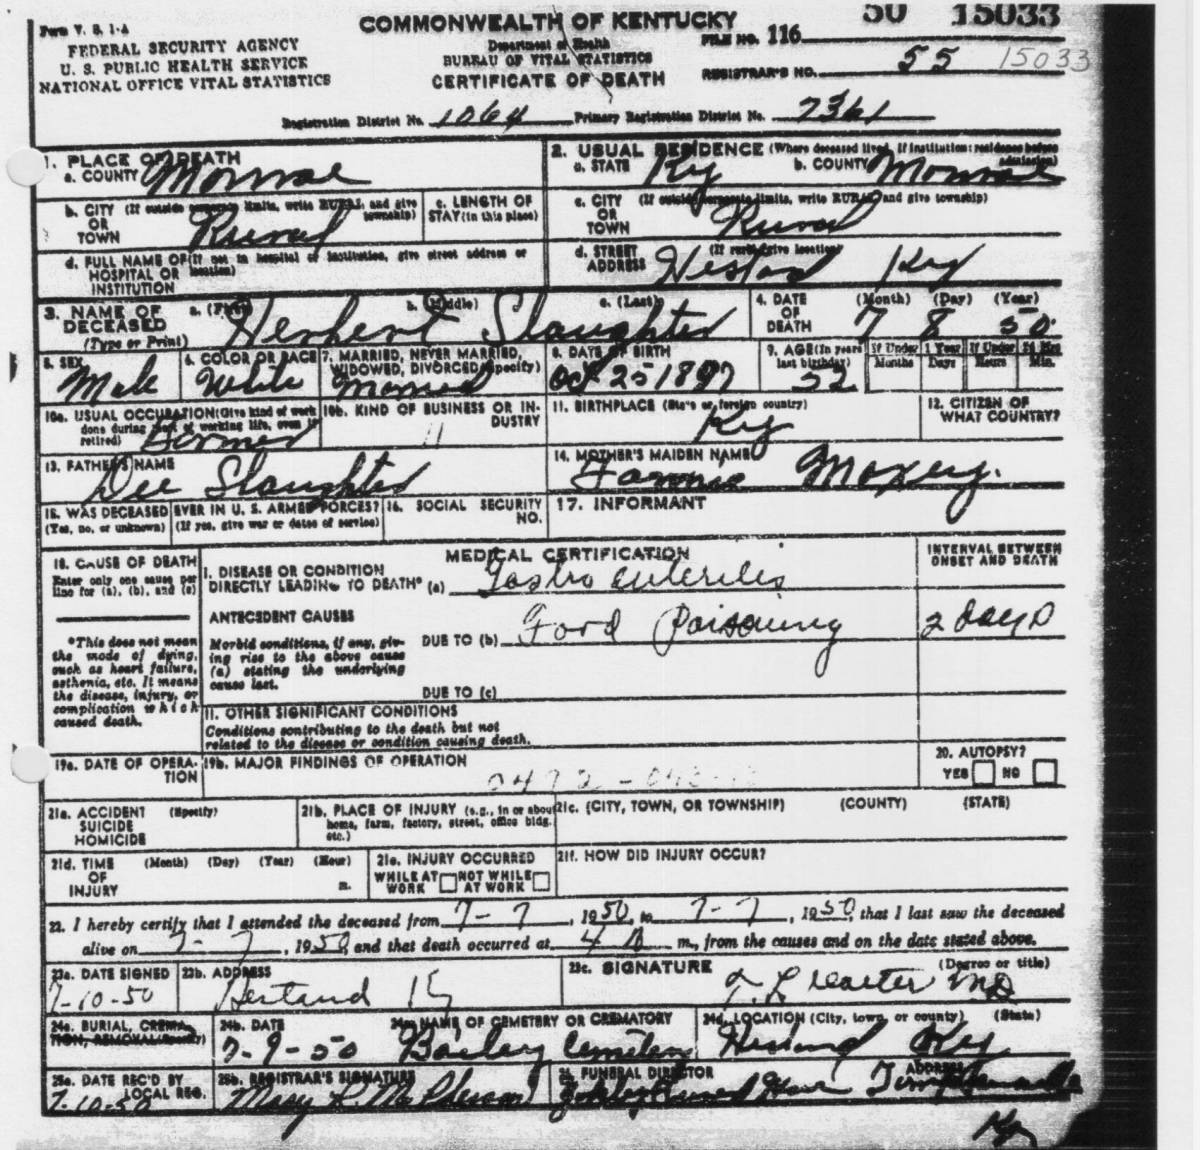 Form V. S. 1-A
COMMONWEALTH OF KENTUCKY
50 15033
FEDERAL SECURITY AGENCY
U. S. PUBLIC HEALTH SERVICE
NATIONAL OFFICE VITAL STATISTICS
Department of Health
BUREAU OF VITAL STATISTICS
CERTIFICATE OF DEATH
FILE NO. 116
REGISTRAR'S NO. 55 15033
Registration District No. 1064 Primary Registration District No. 7361
1. PLACE OF DEATH
a. COUNTY Monroe
2. USUAL RESIDENCE (Where deceased lived. If institution: residence before admission)
a. STATE Ky b. COUNTY Monroe
b. CITY (If outside corporate limits, write RURAL and give township)
OR
TOWN Rural
c. LENGTH OF STAY (in this place)
c. CITY (If outside corporate limits, write RURAL and give township)
OR
TOWN Rural
d. FULL NAME OF (If not in hospital or institution, give street address or location)
HOSPITAL OR
INSTITUTION
d. STREET (If rural, give location)
ADDRESS Hestand Ky
3. NAME OF DECEASED (Type or Print)
a. (First) b. (Middle) c. (Last)
Herbert Slaughter
4. DATE OF DEATH (Month) (Day) (Year)
7 8 50
5. SEX
Male
6. COLOR OR RACE
White
7. MARRIED, NEVER MARRIED, WIDOWED, DIVORCED (Specify)
Married
8. DATE OF BIRTH
Oct 25 1897
9. AGE (In years last birthday)
52
If Under 1 Year Months Days
If Under 24 Hrs Hours Min.
10a. USUAL OCCUPATION (Give kind of work done during most of working life, even if retired)
Farmer
10b. KIND OF BUSINESS OR INDUSTRY
11
11. BIRTHPLACE (State or foreign country)
Ky
12. CITIZEN OF WHAT COUNTRY?
13. FATHER'S NAME
Dee Slaughter
14. MOTHER'S MAIDEN NAME
Moxey.
15. WAS DECEASED EVER IN U. S. ARMED FORCES?
(Yes, no, or unknown) (If yes, give war or dates of service)
16. SOCIAL SECURITY NO.
17. INFORMANT
18. CAUSE OF DEATH
Enter only one cause per line for (a), (b), and (c)
*This does not mean the mode of dying, such as heart failure, asthenia, etc. It means the disease, injury, or complication which caused death.
MEDICAL CERTIFICATION
INTERVAL BETWEEN ONSET AND DEATH
I. DISEASE OR CONDITION
DIRECTLY LEADING TO DEATH* (a) Gastro enteritis
ANTECEDENT CAUSES
Morbid conditions, if any, giving rise to the above cause (a) stating the underlying cause last.
DUE TO (b) Food Poisoning 2 days
DUE TO (c)
11. OTHER SIGNIFICANT CONDITIONS
Conditions contributing to the death but not related to the disease or condition causing death.
19a. DATE OF OPERATION
19b. MAJOR FINDINGS OF OPERATION
20. AUTOPSY?
YES NO
21a. ACCIDENT (Specify)
SUICIDE
HOMICIDE
21b. PLACE OF INJURY (e.g., in or about home, farm, factory, street, office bldg. etc.)
21c. (CITY, TOWN, OR TOWNSHIP) (COUNTY) (STATE)
21d. TIME (Month) (Day) (Year) (Hour)
OF
INJURY m.
21e. INJURY OCCURRED
WHILE AT WORK NOT WHILE AT WORK
21f. HOW DID INJURY OCCUR?
22. I hereby certify that I attended the deceased from 7-7, 1950, to 7-7, 1950, that I last saw the deceased
alive on 7-7, 1950, and that death occurred at 4 A m., from the causes and on the date stated above.
23a. DATE SIGNED
7-10-50
23b. ADDRESS
Hestand Ky
23c. SIGNATURE (Degree or title)
MD
24a. BURIAL, CREMATION, REMOVAL (Specify)
24b. DATE
7-9-50
24c. NAME OF CEMETERY OR CREMATORY
Bailey Cemetery
24d. LOCATION (City, town, or county) (State)
Hestand Ky
25a. DATE REC'D BY LOCAL REG.
7-10-50
25b. REGISTRAR'S SIGNATURE
Mary L. McPherson
26. FUNERAL DIRECTOR ADDRESS
Tompkinsville
Ky